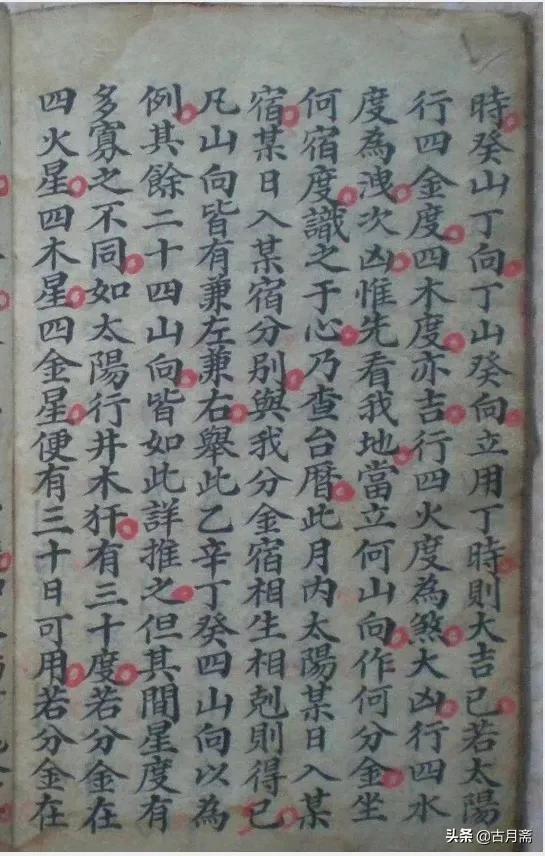 時癸山丁向丁山癸向立用丁時則大吉已若太陽
行四金度四木度亦吉行四火度為煞大凶行四水
度為洩次凶惟先看我地當立何山向作何分金坐
何宿度識之于心乃查台曆此月內太陽某日入某
宿某日入某宿分別與我分金宿相生相剋則得已
凡山向皆有兼左兼右舉此乙辛丁癸四山向以為
例其餘二十四山向皆如此詳推之但其間星度有
多寡之不同如太陽行井木犴有三十度若分金在
四火星四木星四金星便有三十日可用若分金在
头条 @古月斋